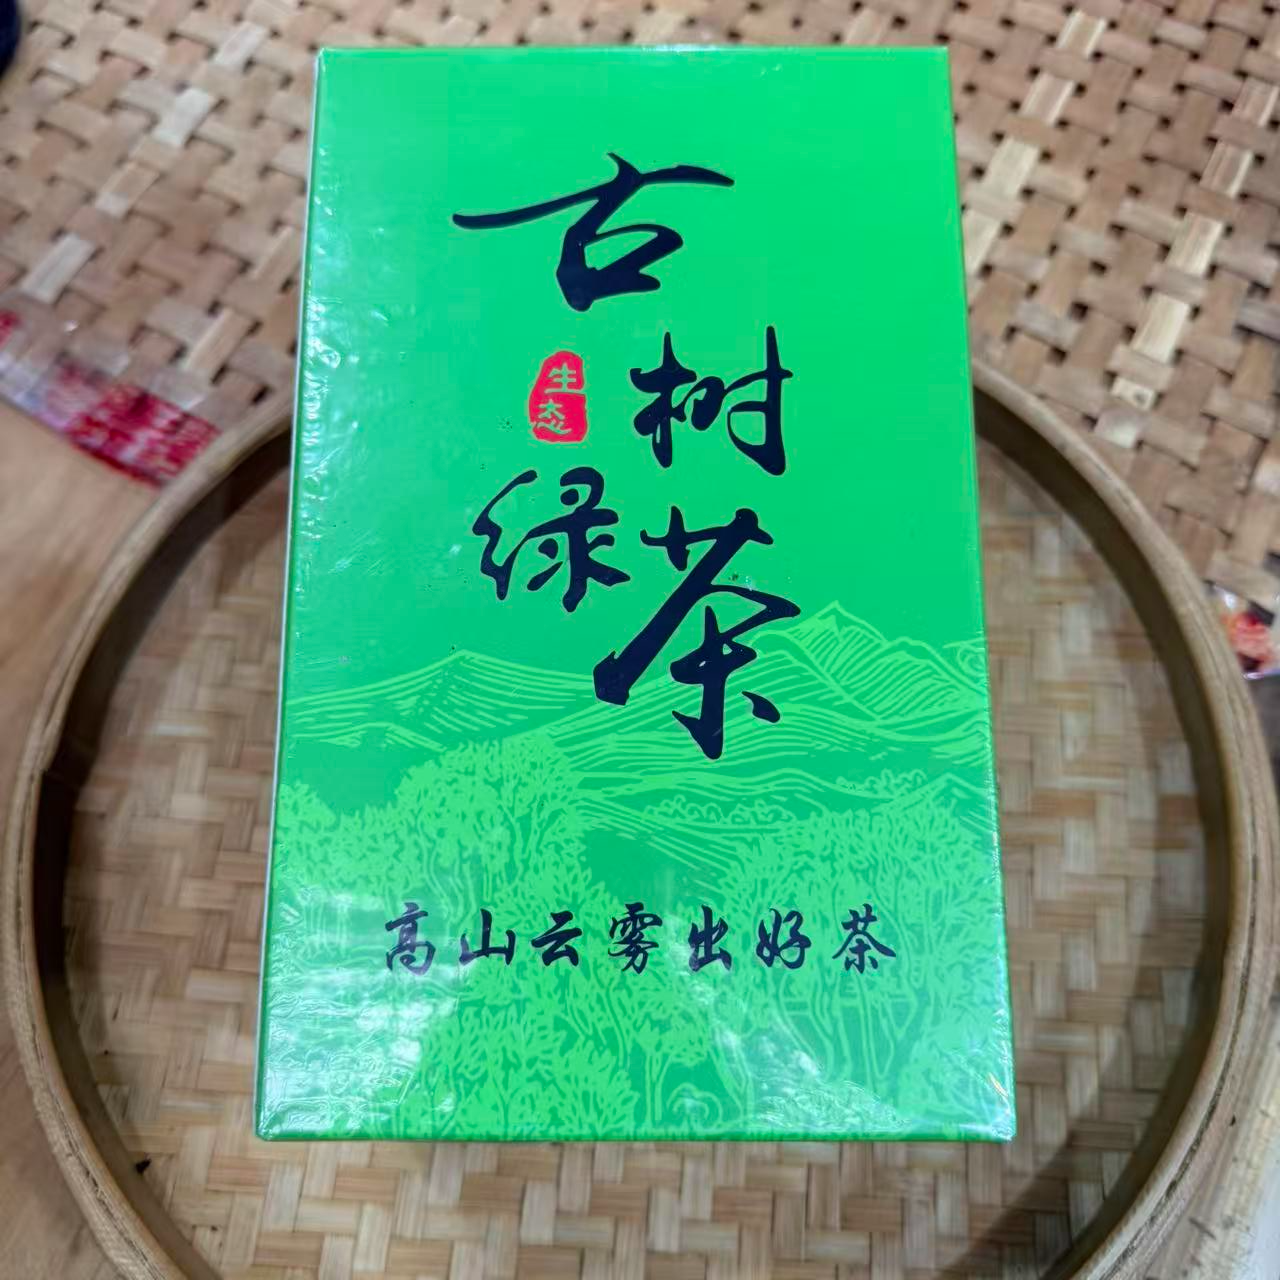 古树
绿茶
生态
高山云雾出好茶